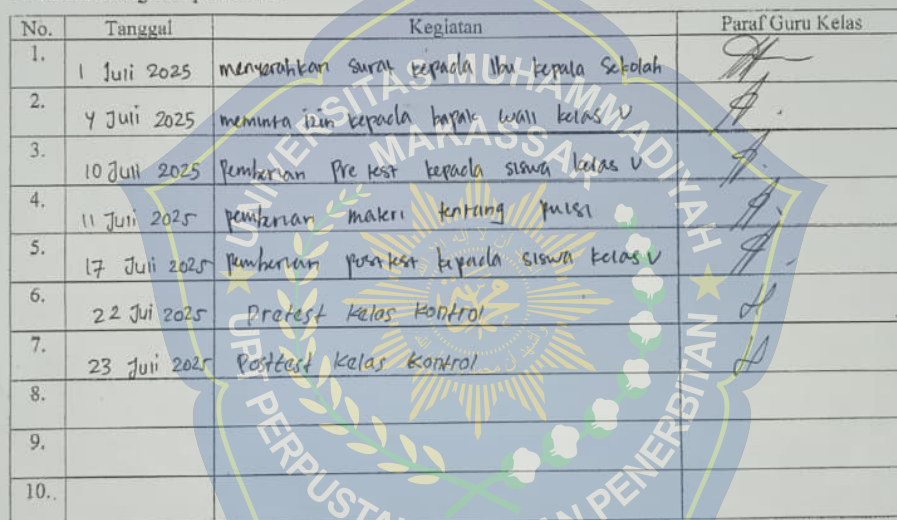 No. Tanggal Kegiatan Paraf Guru Kelas
1. 1 Juli 2025 menyerahkan surat kepada Ibu kepala Sekolah
2. 4 Juli 2025 meminta izin kepada bapak wali kelas V
3. 10 Juli 2025 Pemberian Pre test kepada siswa kelas V
4. 11 Juli 2025 pemberian materi tentang puisi
5. 17 Juli 2025 pemberian posttest kepada siswa kelas V
6. 22 Jui 2025 Pretest kelas kontrol
7. 23 Juli 2025 Posttest kelas kontrol
8.
9.
10..
UNIVERSITAS MUHAMMADIYAH
MAKASSAR